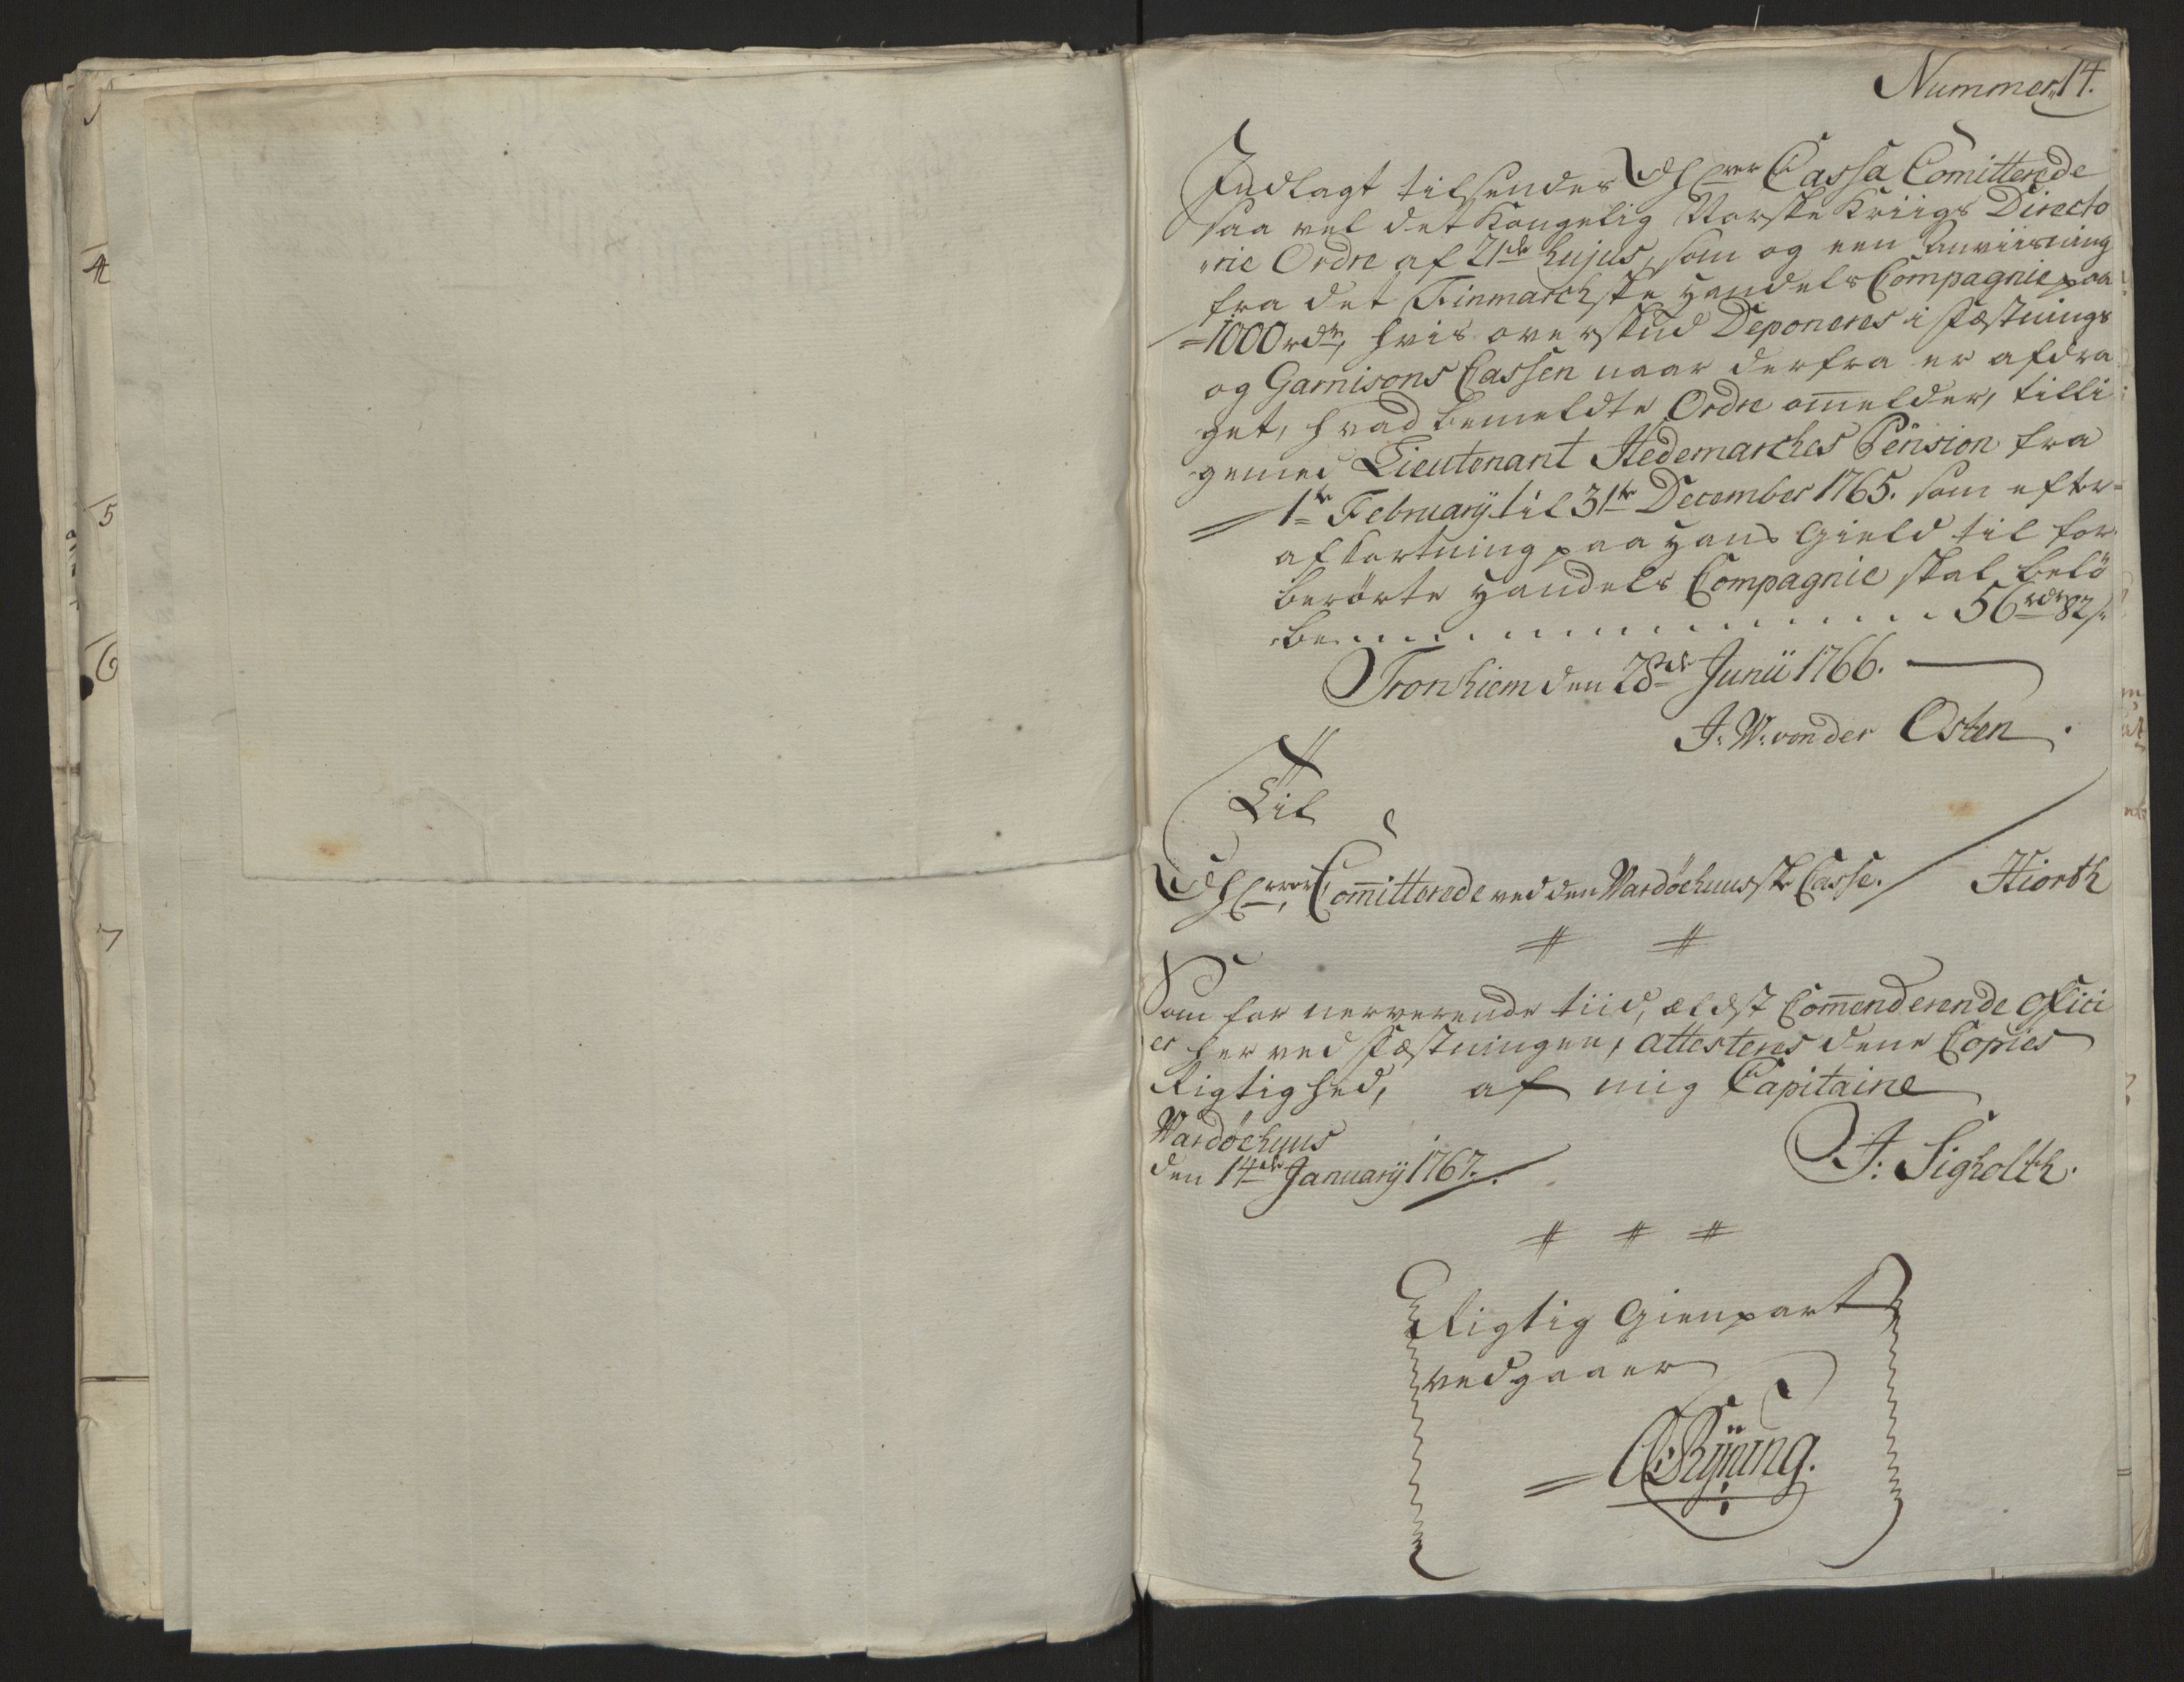 Nummer 14.
Indlagt tilsendes Cassa Comitterede
saa vel det Kongelig Norske Kriigs Directo
rie Ordre af 21de hujus, som og een Anviisning
fra det Finmarchske Handels Compagnie paa
1000 rdr, hvis overskud Deponeres i Fæstnings
og Garnisons Cassen naar derfra er afdra
get, hvad bemeldte Ordre om̄elder, tilli
gemed Lieutenant Hedemarches Pension fra
1te Februarÿ til 31te December 1765. som efter
afkortning paa hans Gield til for
berörte Handels Compagnie skal belö
be . . . . . . . . . . . . . . . . . 56 rdr 82 s.
Tronhiem den 28de Junii 1766.
J: W: von der Osten.
Til
Com̄itterede ved den Wardöehuuske Casse. Hiorth
Som for nerverende tiid, ældst Com̄enderende Offici
er her ved Fæstningen, attesteres dene Copies
Rigtighed, af mig Capitaine
Wardöehuus
den 14de Januarÿ 1767.
J: Sigholth.
Rigtig Gienpart
vedgaaer
4
5
6
7